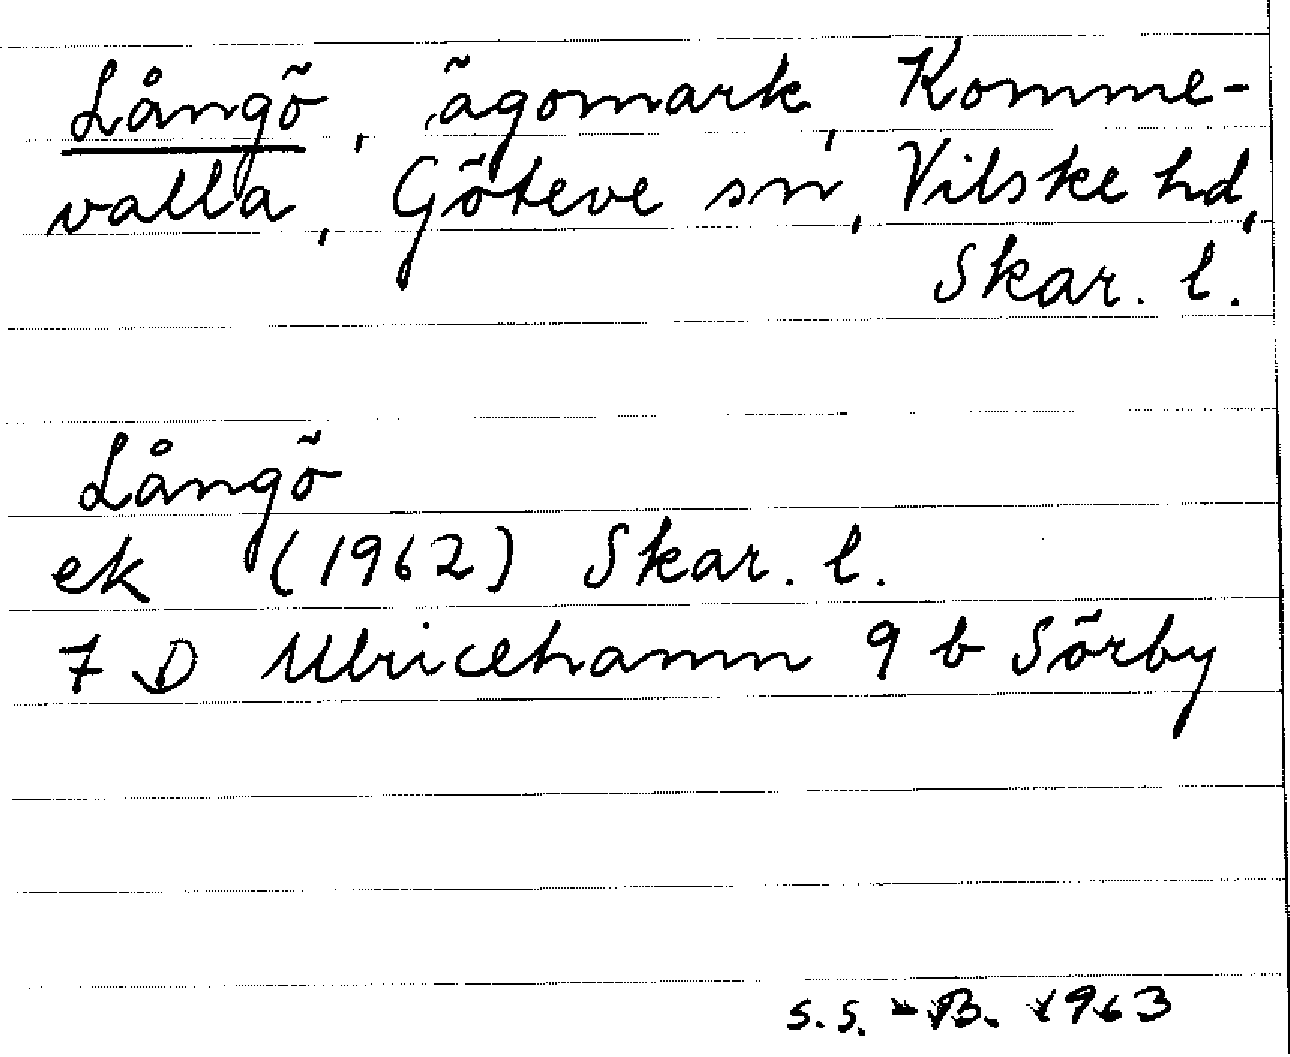 Långö, ägomark, Komme-
valla, Göteve sn, Vilske hd,
Skar. l.
Långö
ek (1962) Skar. l.
7 D Ulricehamn 9 b Sörby
S.S.-B. 1963